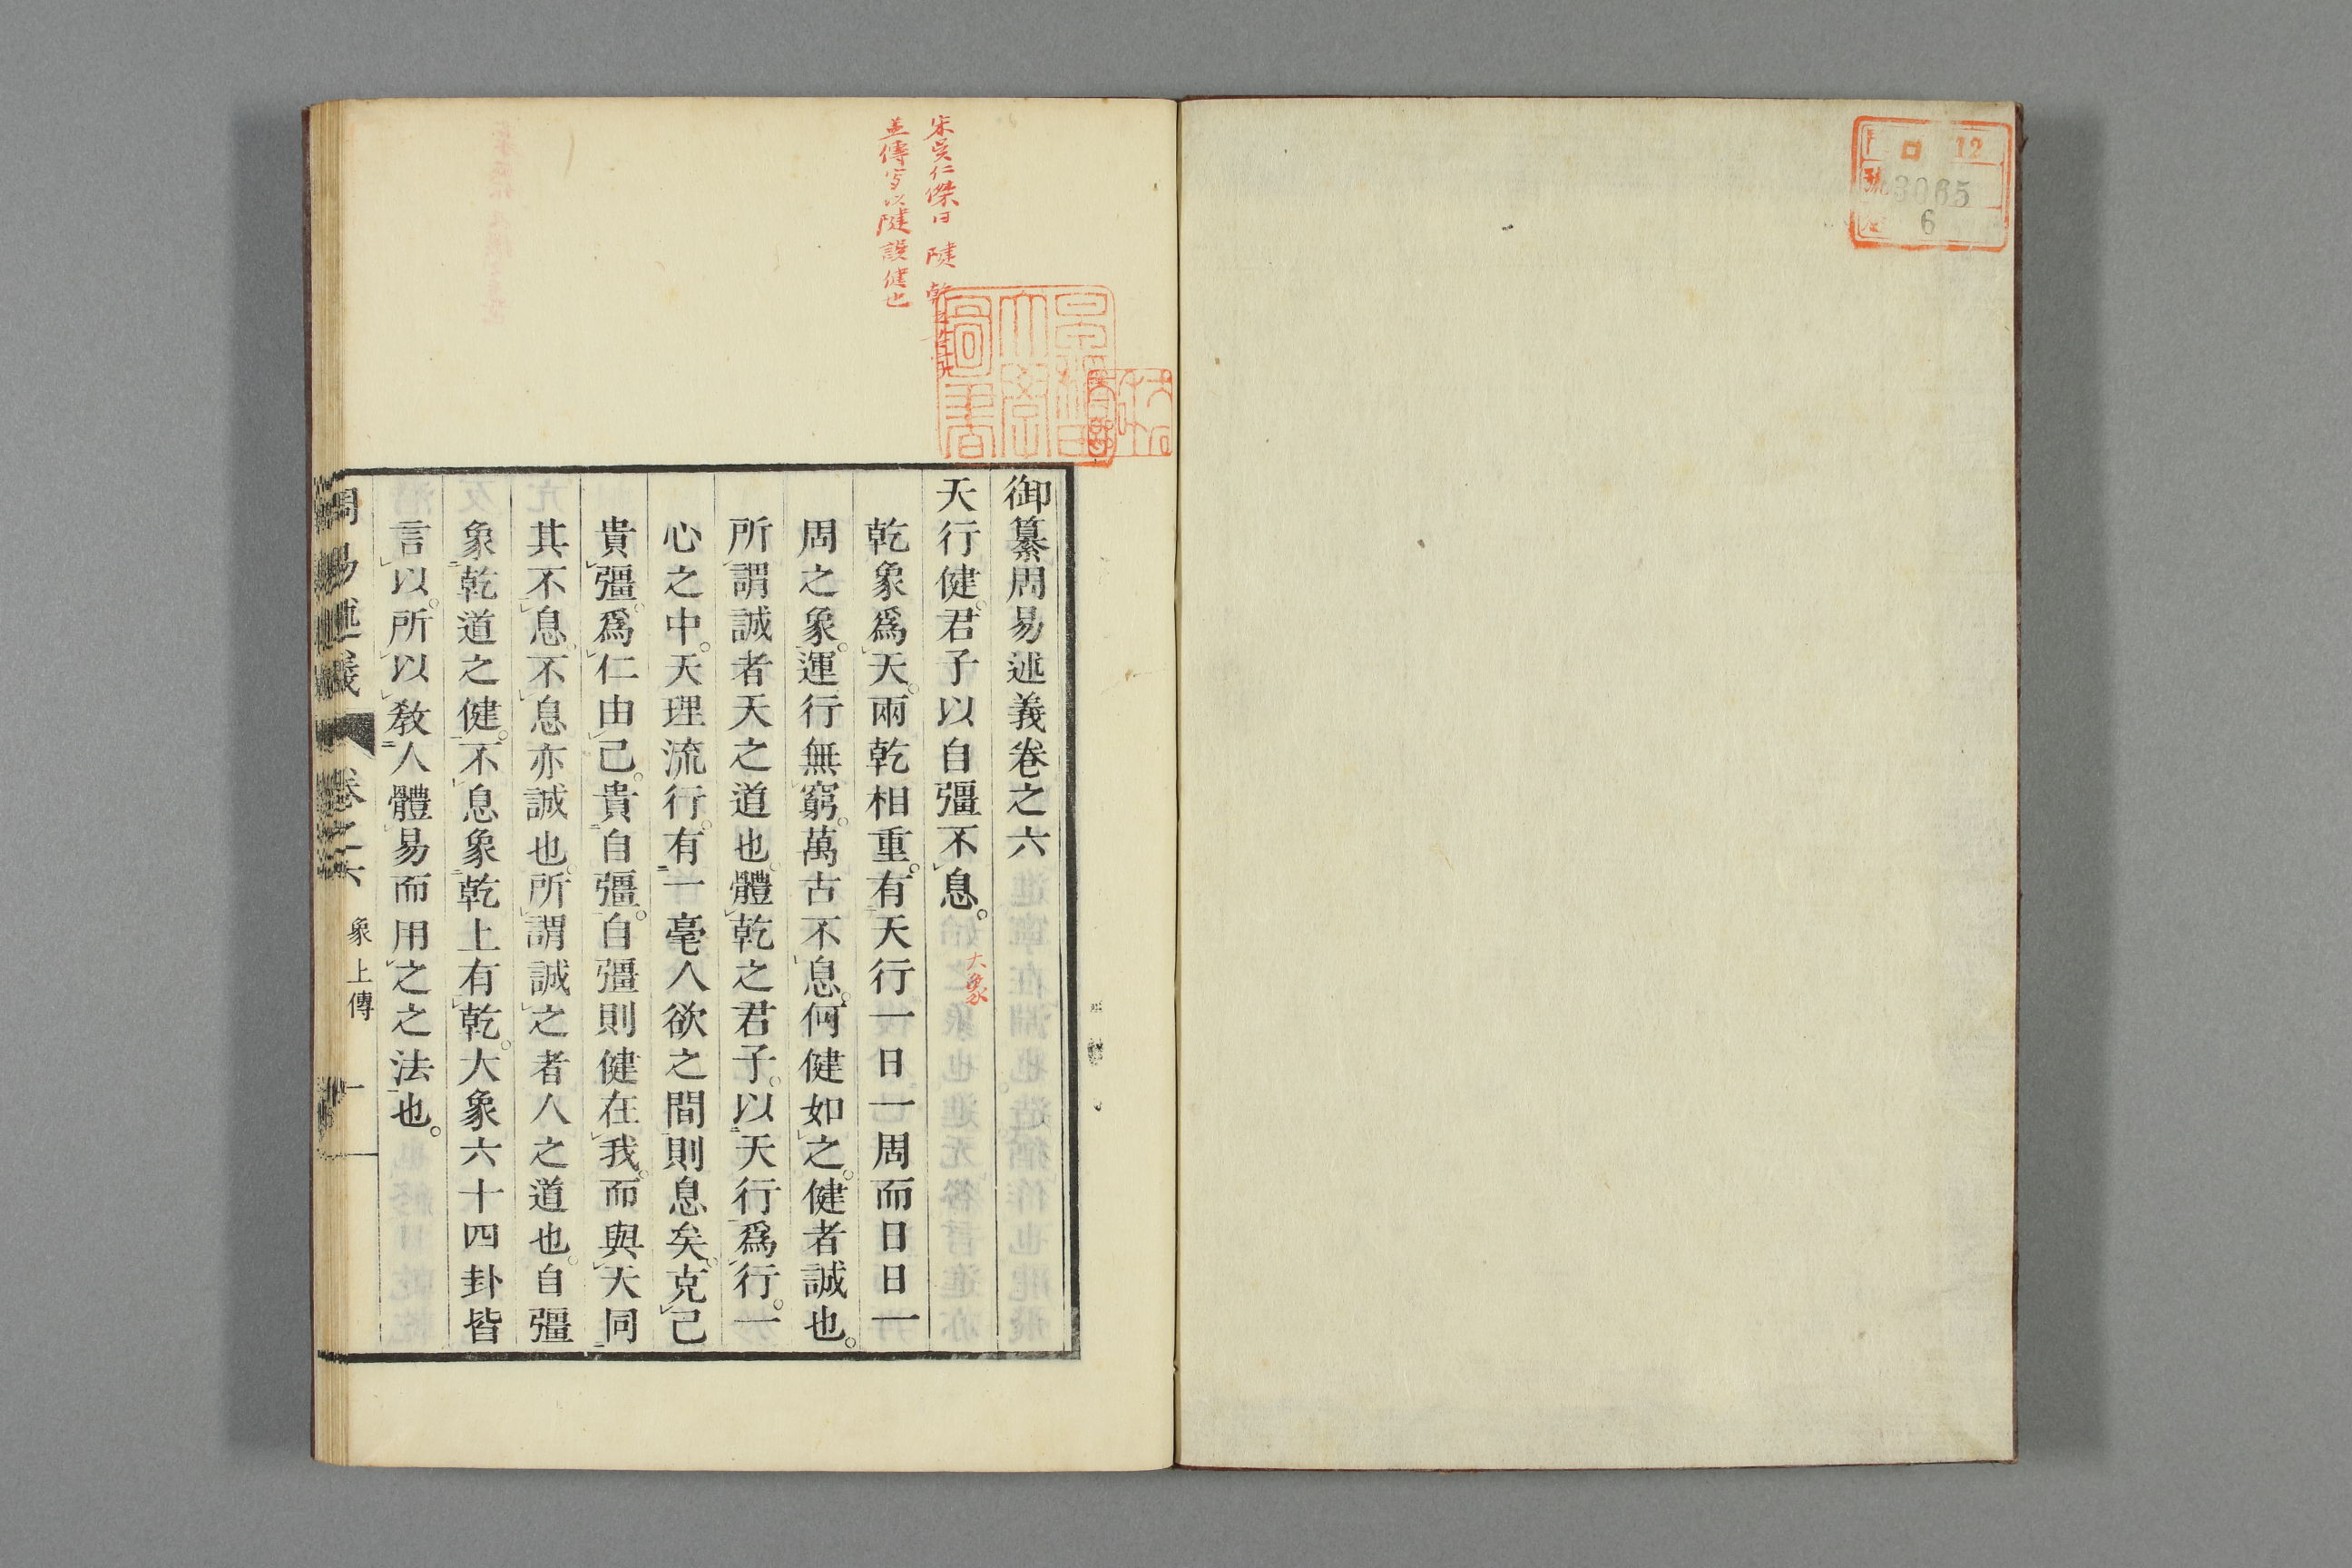 12
3065
6
宋吳仁傑曰𨺩乾之
蓋傳寫以𨺩誤健也
早稻田大學圖書
御纂周易述義卷之六
天行健。君子以自彊不息。
大象
乾象爲天。兩乾相重。有天行一日一周而日日一
周之象。運行無窮。萬古不息。何健如之。健者誠也。
所謂誠者天之道也。體乾之君子。以天行爲行。一
心之中。天理流行。有一毫人欲之間則息矣。克己
貴彊。爲仁由己。貴自彊。自彊則健在我。而與天同
其不息。不息亦誠也。所謂誠之者人之道也。自彊
象乾道之健。不息象乾上有乾。大象六十四卦皆
言以。所以教人體易而用之之法也。
周易述義 卷之六 象上傳 一